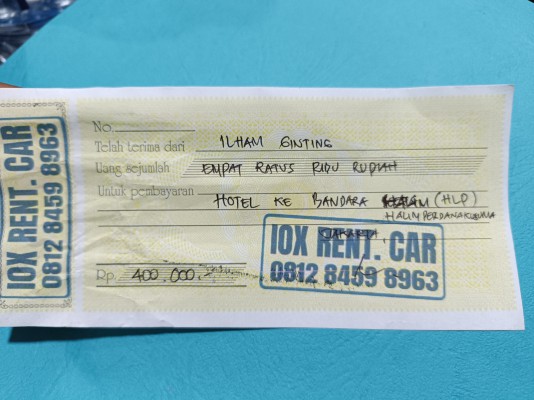 IOX RENT. CAR
0812 8459 8963
No.
Telah terima dari ILHAM GINTING
Uang sejumlah EMPAT RATUS RIBU RUPIAH
Untuk pembayaran HOTEL KE BANDARA (HLP)
HALIM PERDANAKUSUMA
JAKARTA
IOX RENT. CAR
0812 8459 8963
Rp. 400.000